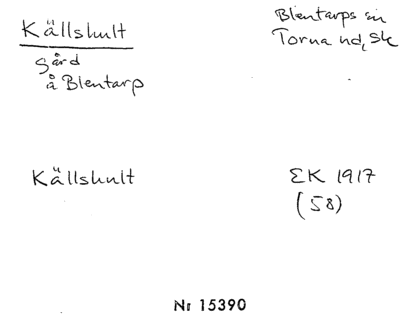 Källshult
Blentarps sn
Torna hd, Sk
gård
å Blentarp
Källshult
EK 1917
(58)
Nr 15390